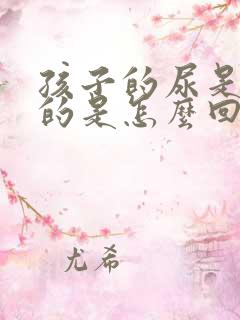 孩子的尿是
的是怎麼回
尤希